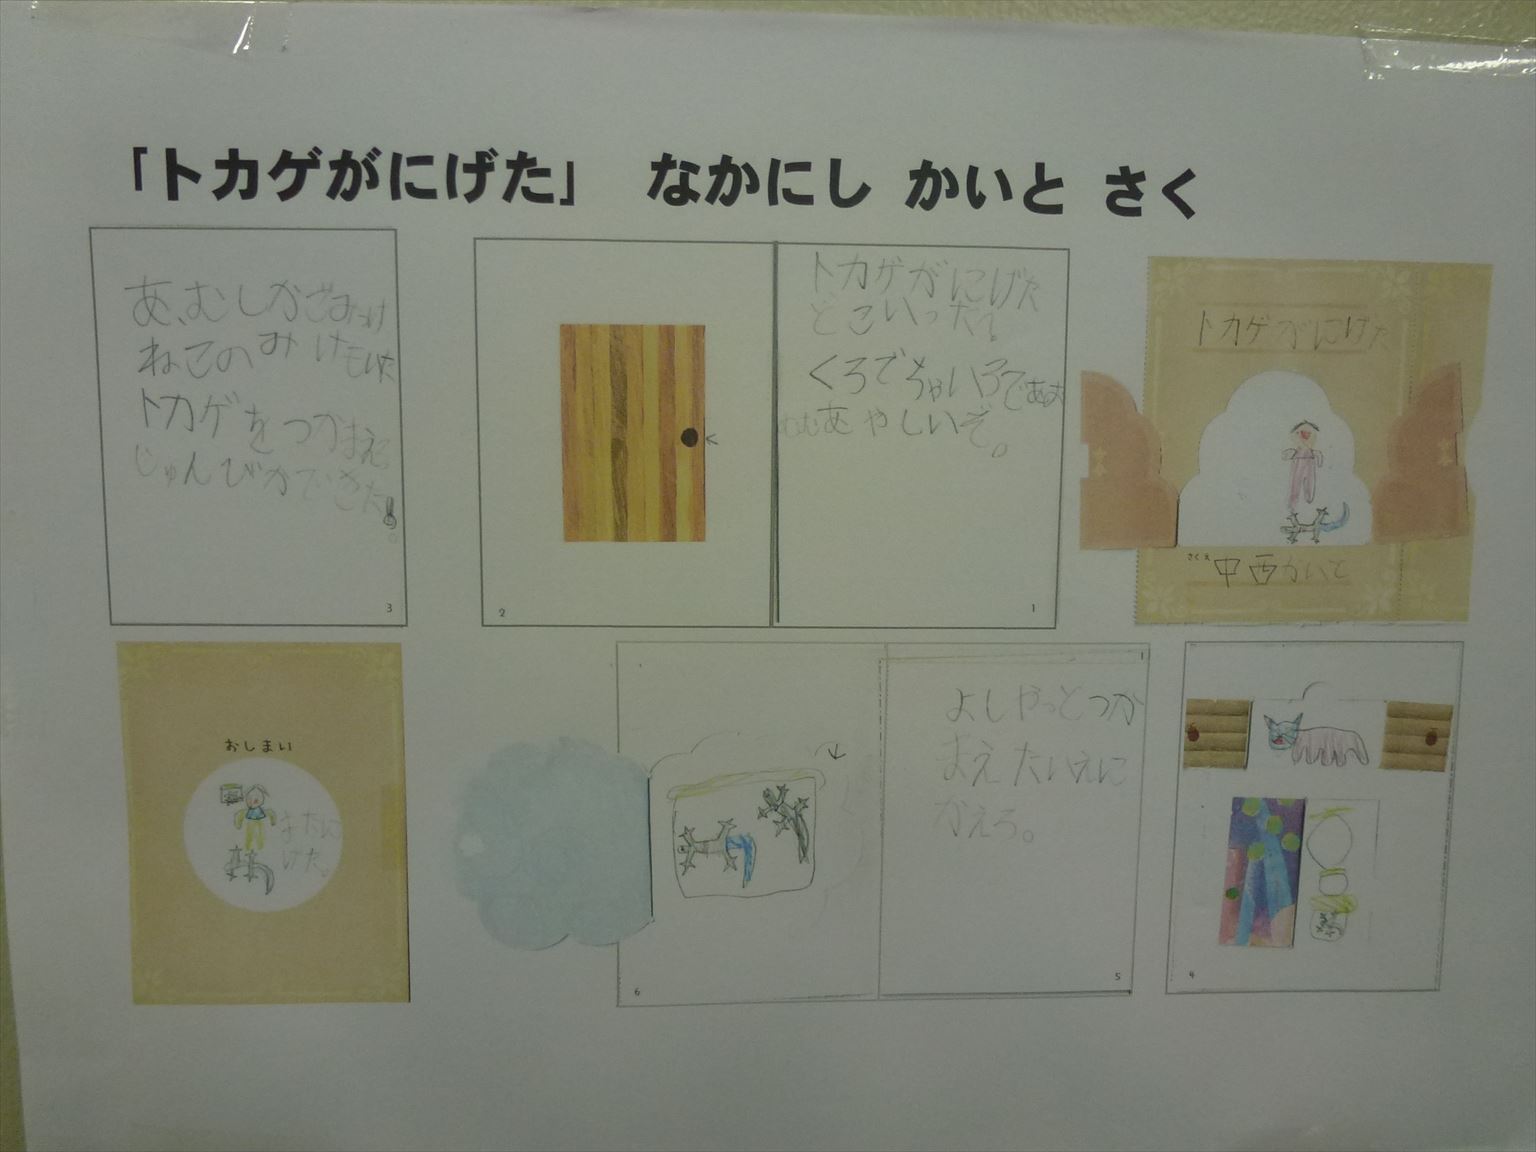 「トカゲがにげた」 なかにし かいと さく
トカゲがにげた
さくえ
中西かいと
トカゲがにげた
どこいった?
くろでちゃいろであお
むむあやしいぞ。
1
2
あ、むしかごみっけ
ねこのみけもいた
トカゲをつかまえる
じゅんびができた!
3
4
よしやっとつか
まえたいえに
かえろ。
5
6
おしまい
またに
げた。